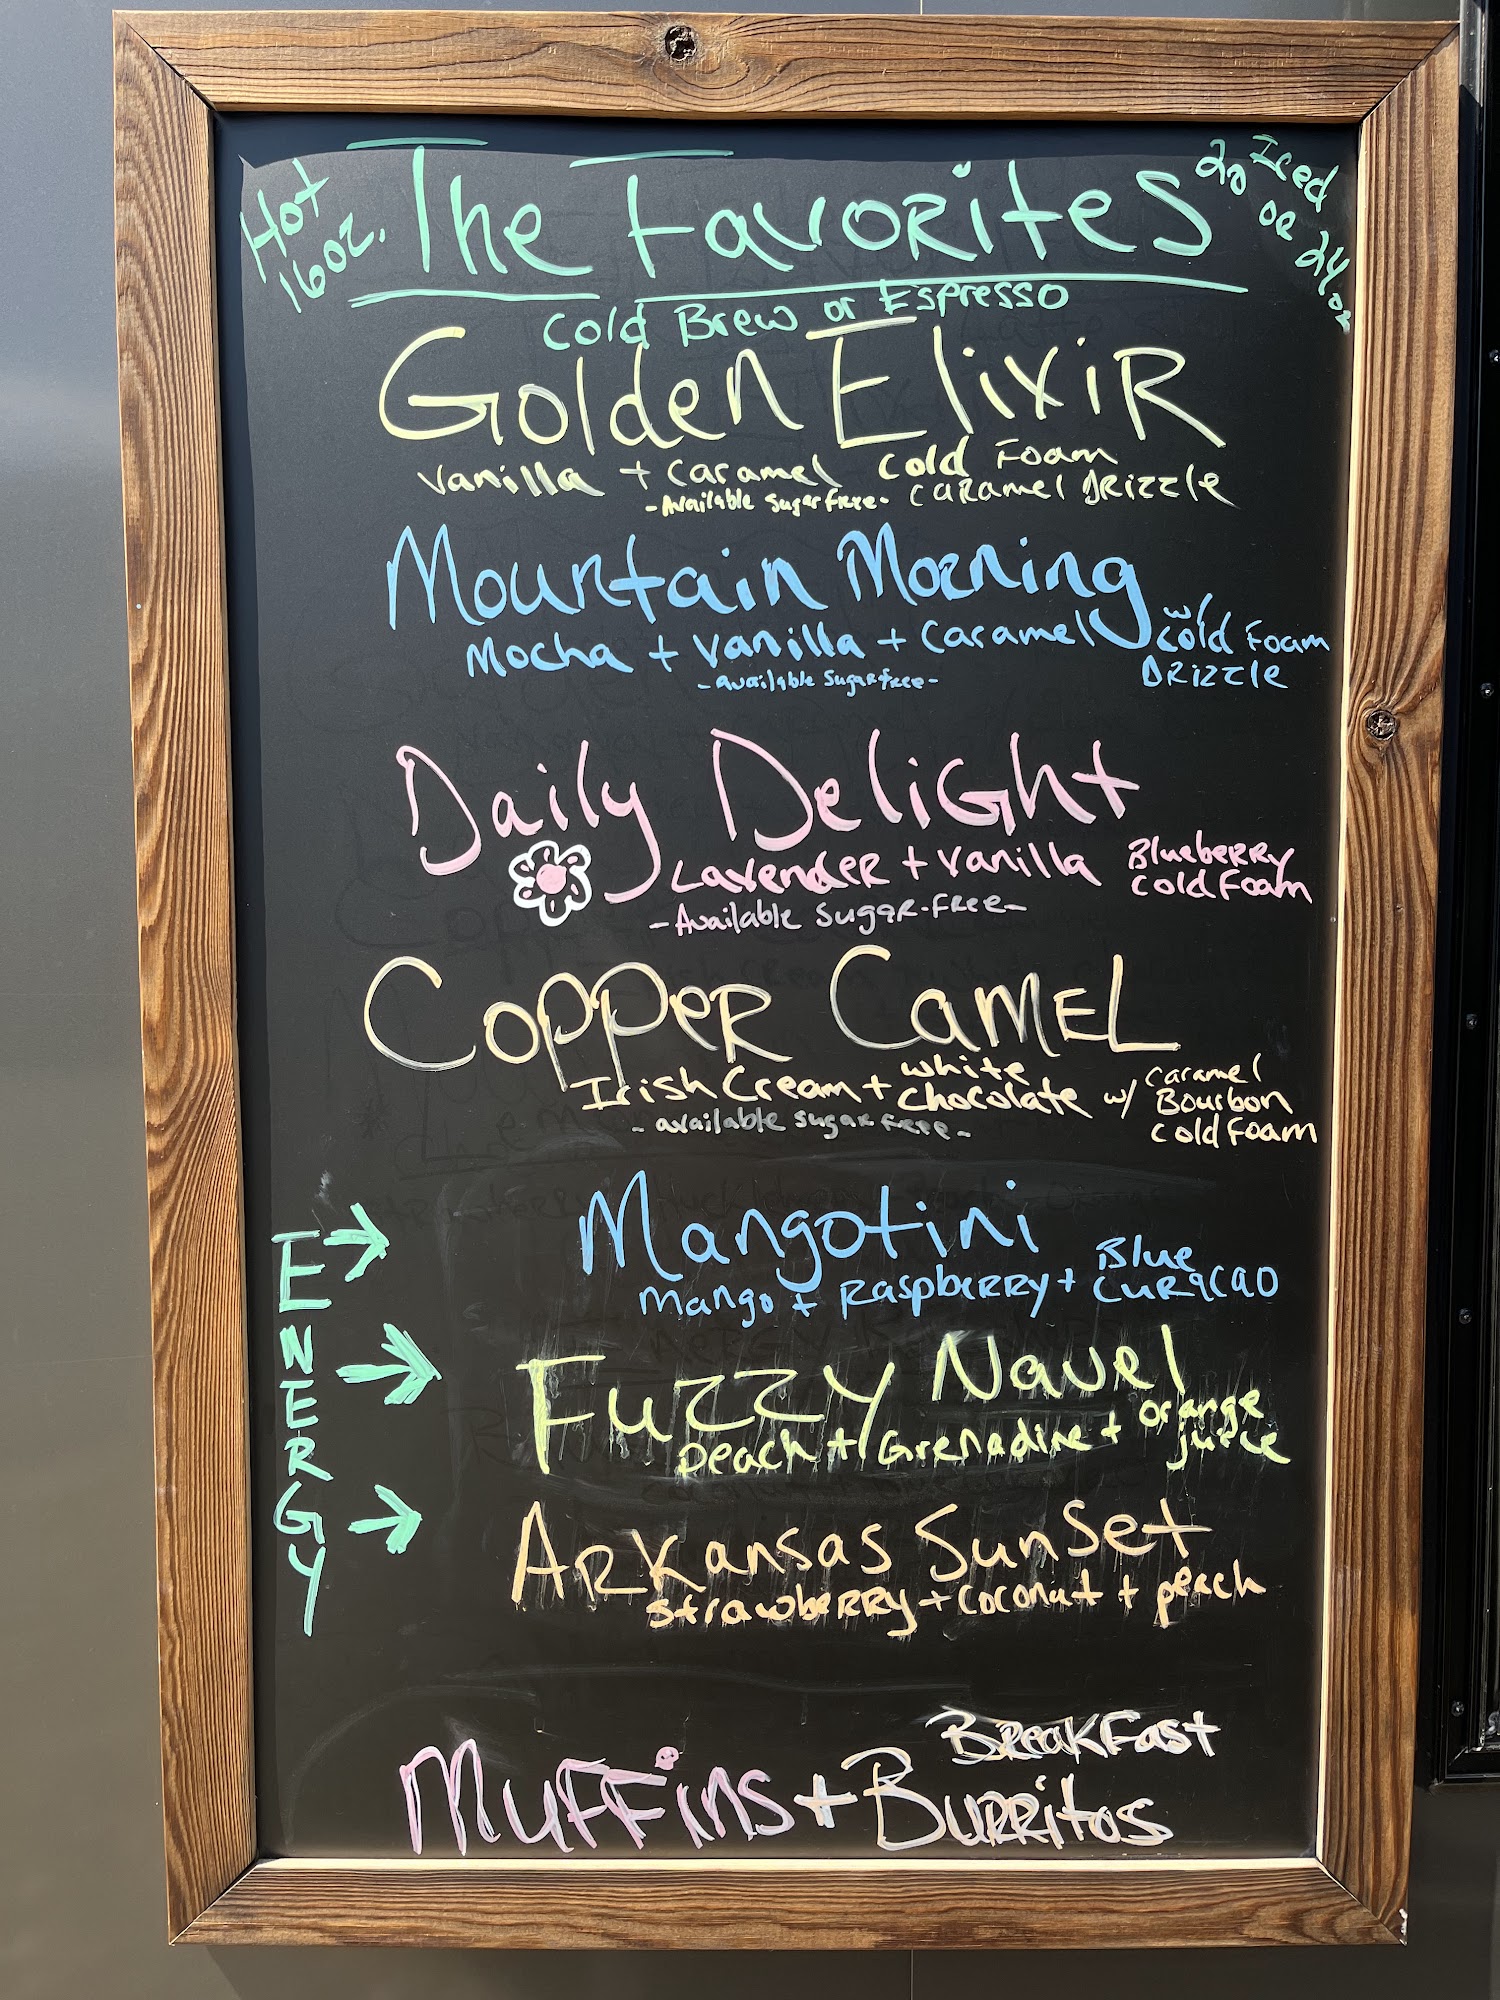 Hot
16oz.
The Favorites
Iced
20 or 24oz
Cold Brew or Espresso
Golden Elixir
Vanilla + Caramel Cold Foam
-Available Sugar free- Caramel Drizzle
Mountain Morning
Mocha + Vanilla + Caramel w/ Cold Foam
-Available Sugar free- Drizzle
Daily Delight
Lavender + Vanilla Blueberry
Cold Foam
-Available Sugar-Free-
Copper Camel
Irish Cream + White Chocolate w/ Caramel Bourbon Cold Foam
-available sugar free-
ENERGY
Mangotini
Mango + Raspberry + Blue Curacao
Fuzzy Navel
Peach + Grenadine + orange juice
Arkansas Sunset
Strawberry + Coconut + peach
Muffins + Breakfast Burritos